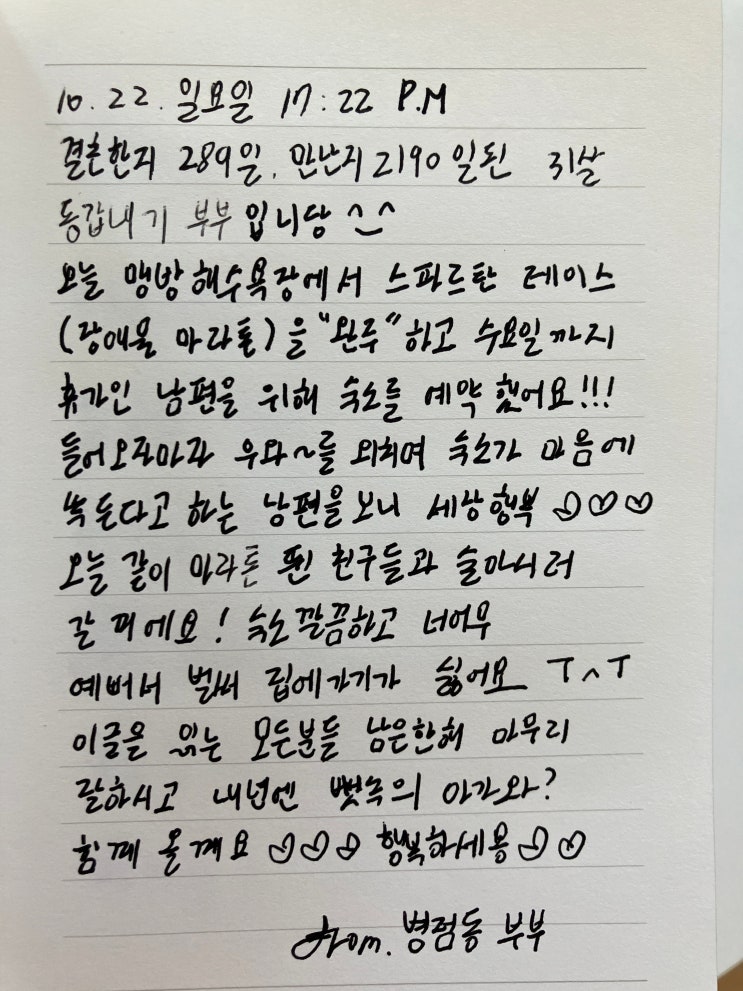 10. 22. 일요일 17:22 P.M
결혼한지 289일, 만난지 2190일된 31살
동갑내기 부부입니당 ^_^
오늘 맹방해수욕장에서 스파르탄 레이스
(장애물 마라톤)을 "완주"하고 수요일까지
휴가인 남편을 위해 숙소를 예약했어요!!!
들어오자마자 우와~를 외치며 숙소가 마음에
쏙 든다고 하는 남편을 보니 세상행복 ♡♡♡
오늘 같이 마라톤 뛴 친구들과 술마시러
갈꺼에요! 숙소 깔끔하고 너어무
예뻐서 벌써 집에가기가 싫어요 ㅜ^ㅜ
이글을 읽는 모든분들 남은한해 마무리
잘하시고 내년엔 뱃속의 아가와?
함께 올게요 ♡♡♡ 행복하세용 ♡♡
from. 병점동 부부